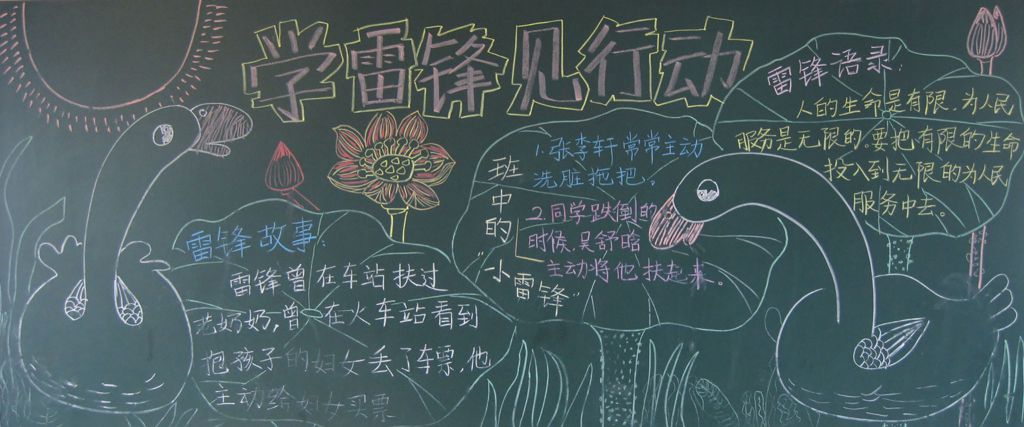 学雷锋见行动
雷锋故事：
雷锋曾在车站扶过
老奶奶，曾在火车站看到
抱孩子的妇女丢了车票，他
主动给妇女买票
班中的“小雷锋”
1.张李轩常常主动
洗脏拖把。
2.同学跌倒的
时候，吴舒晗
主动将他扶起来。
雷锋语录：
人的生命是有限，为人民
服务是无限的。要把有限的生命
投入到无限的为人民
服务中去。